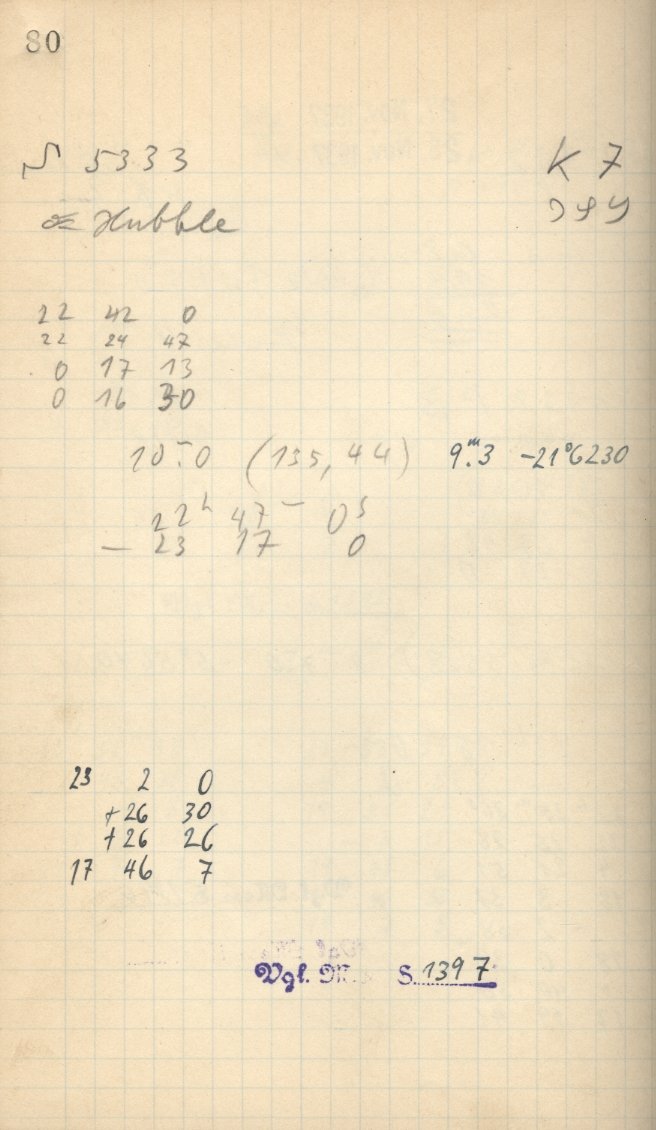 80
S 5333 K 7
Hubble
22 42 0
22 24 47
0 17 13
0 16 30
10.0 (135, 44) 9.ᵐ3 -21°6230
22ʰ 47⁻ 0ˢ
— 23 17 0
23 2 0
+26 30
+26 26
17 46 7
Vgl. S. 1397